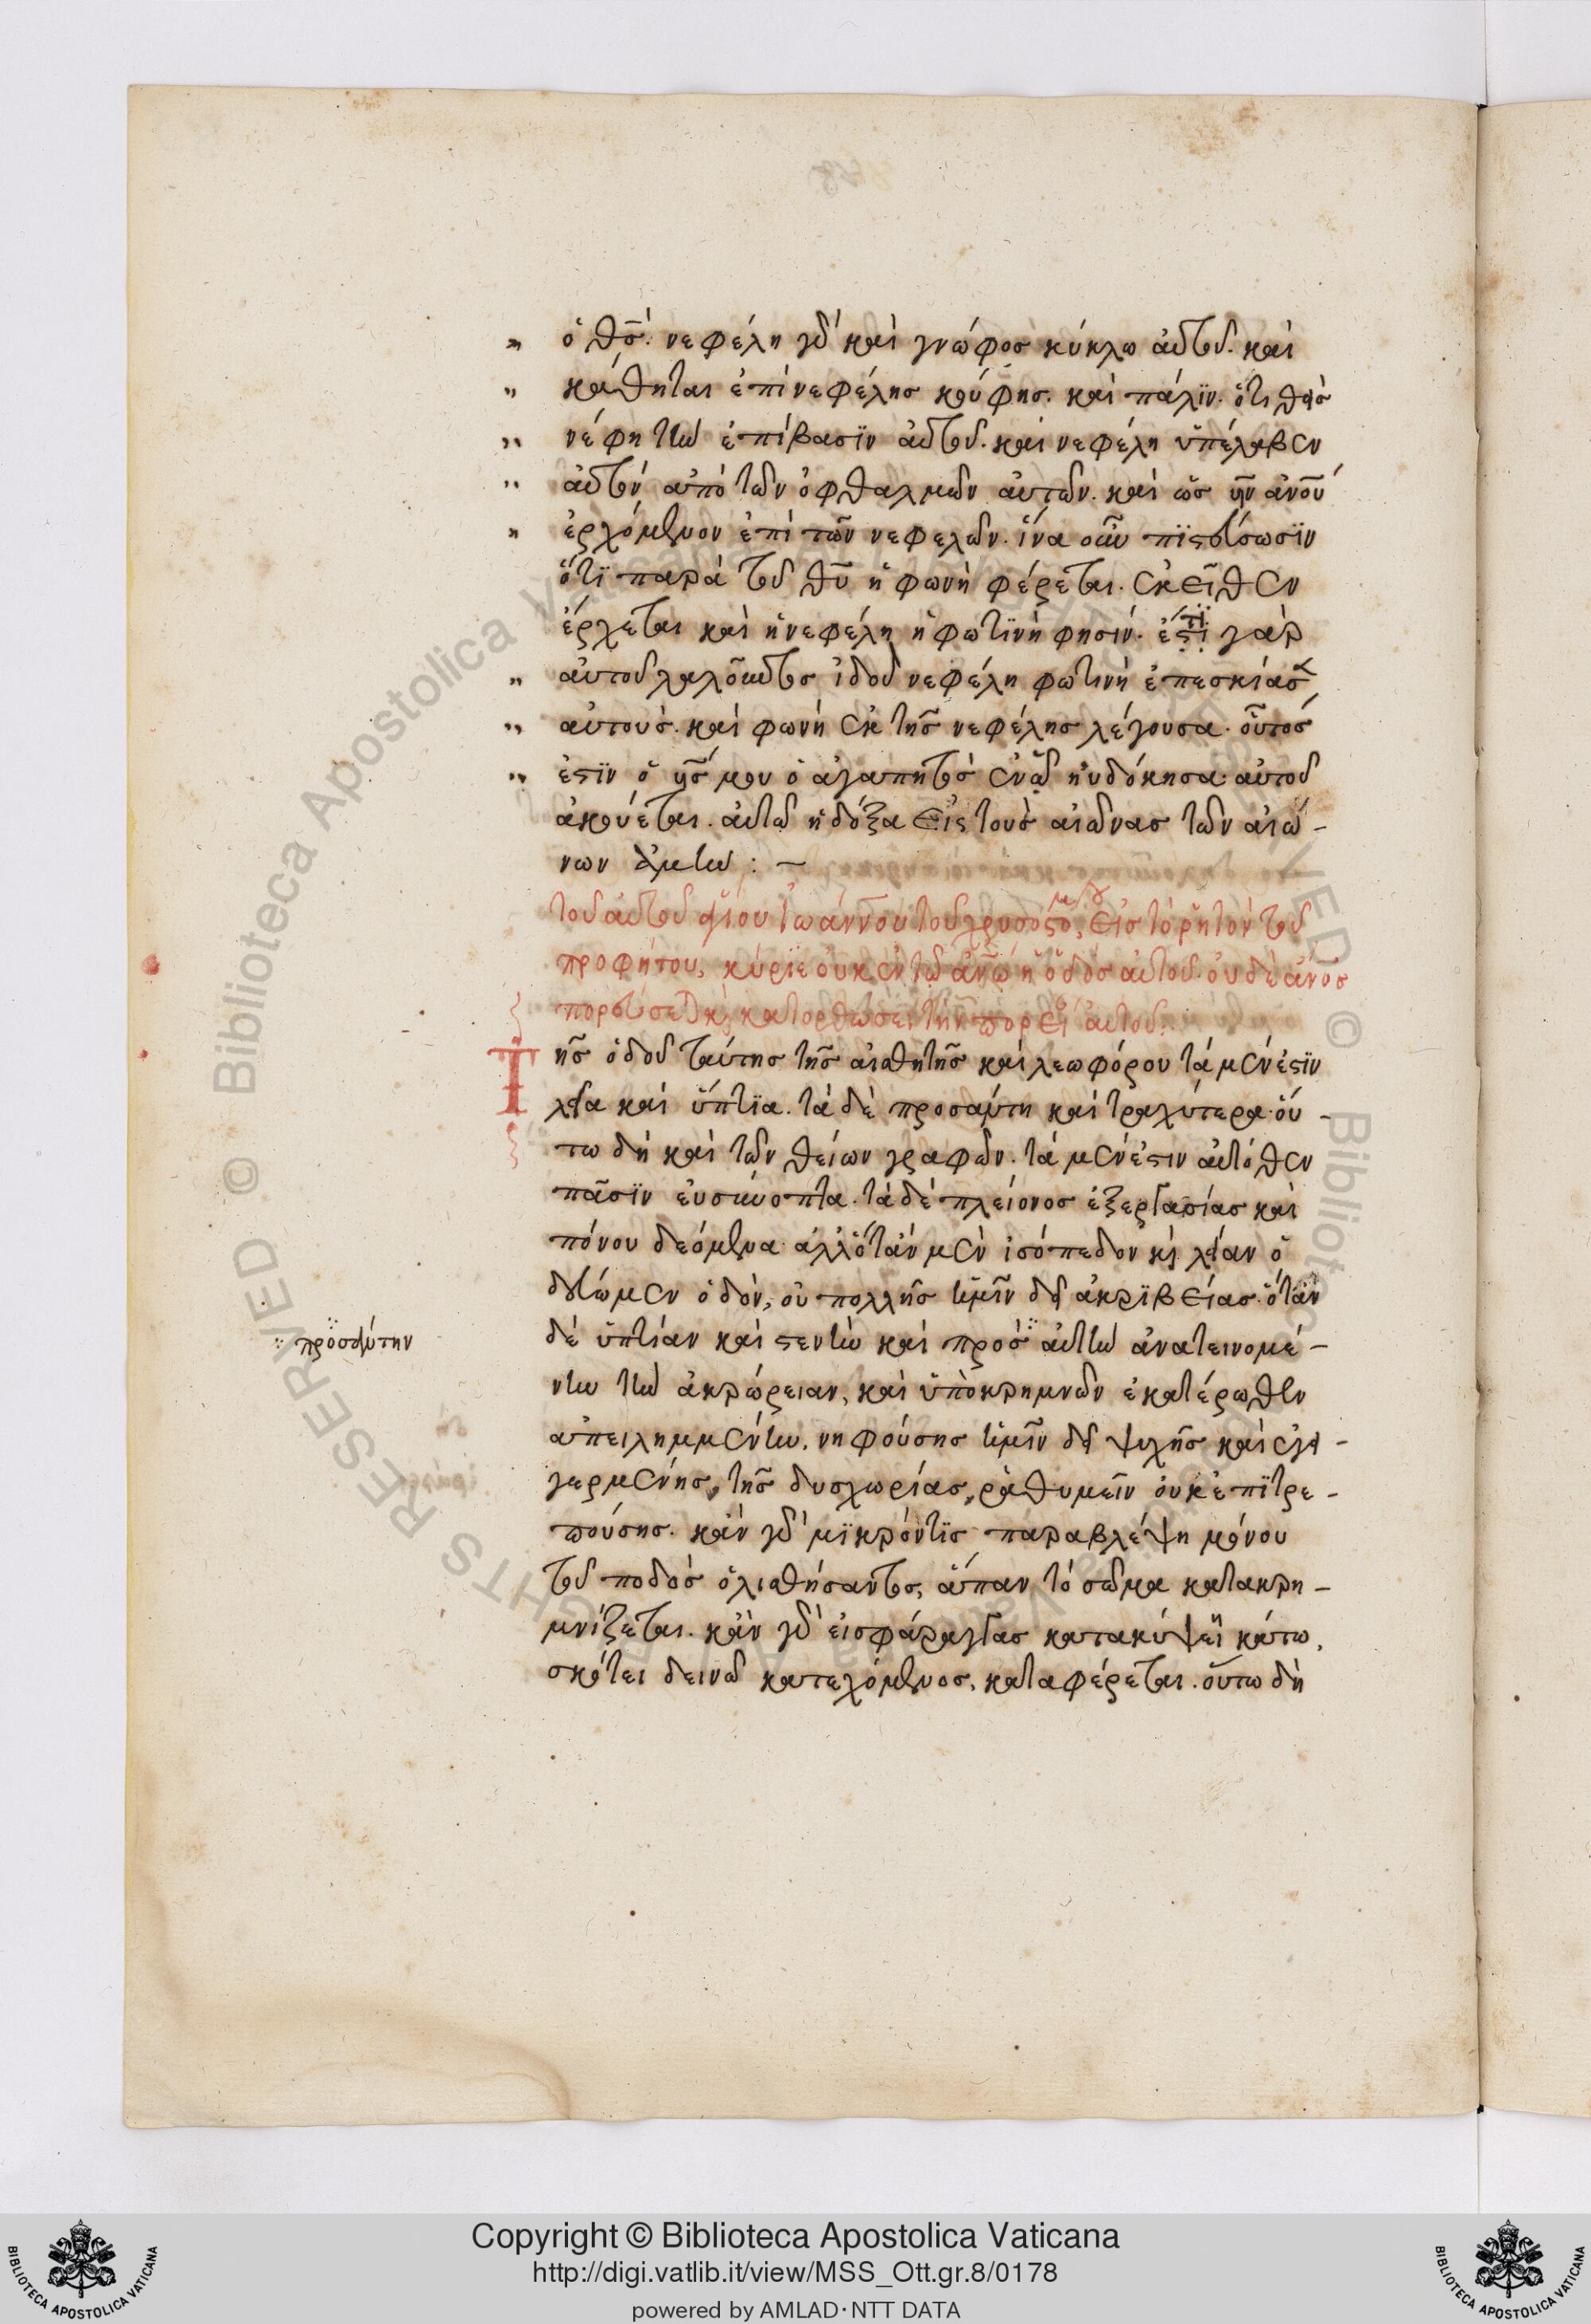 ὁ θς̅. νεφέλη γὰρ καὶ γνώφος κύκλω αὐτοῦ. καὶ
κάθηται ἐπὶ νεφέλης κούφης. καὶ πάλϊν. ὁ τιθεὶς
νέφη τὴν ἐπίβασϊν αὐτοῦ. καὶ νεφέλη ὑπέλαβεν
αὐτὸν ἀπὸ τῶν ὀφθαλμῶν αὐτῶν. καὶ ὡς υν̅ ανου̅
ἐρχόμενον ἐπὶ τῶν νεφελῶν. ἵνα οὖν πϊστεύσωσϊν
ὅτϊ παρὰ τοῦ θυ̅ ἡ φωνὴ φέρεται. ἐκεῖθεν
ἔρχεται καὶ ἡ νεφέλη ἡ φωτϊνὴ φησίν. ἔτι γὰρ
αὐτοῦ λαλοῦντος ἰδοὺ νεφέλη φωτινὴ ἐπεσκίασεν
αὐτούς. καὶ φωνὴ ἐκ τῆς νεφέλης λέγουσα. οὗτός
ἐστϊν ὁ υς̅ μου ὁ ἀγαπητὸς ἐν ᾧ ηὐδόκησα αὐτοῦ
ἀκούεται. αὐτῶ ἡ δόξα εἰς τοὺς αἰῶνας τῶν αἰώ-
νων ἀμήν : ~
τοῦ αὐτοῦ ἁγίου Ἰωάννου τοῦ χρυσοστόμου, εἰς τὸ ῥητὸν τοῦ
προφήτου, κύρϊε οὐκ ἐν τῶ ανω̅ ἡ ὁδὸς αὐτοῦ. οὐδὲ ανος̅
πορεύσεται κ̀ κατορθώσει τὴν πορείαν αὐτοῦ:
Τῆς ὁδοῦ ταύτης τῆς αἰσθητῆς καὶ λεωφόρου τὰ μέν ἐστϊν
λεῖα καὶ ὕπτϊα. τὰ δὲ προσάντη καὶ τραχύτερα οὕ-
τω δὴ καὶ τῶν θείων γραφῶν. τὰ μέν ἐστιν αὐτόθεν
πᾶσϊν εὐσύνοπτα. τὰ δὲ πλείονος ἐξεργασίας καὶ
πόνου δεόμενα ἀλλ' ὅτὰν μὲν ἰσόπεδον κ̀ λείαν ὁ
δεύωμεν ὁδὸν, οὐ πολλῆς ἡμῖν δεῖ ἀκρϊβείας. ὅτὰν
δὲ ὑπτίαν καὶ στενὴν καὶ πρὸς αὐτὴν ἀνατεινομέ-
νην τὴν ἀκρώρειαν, καὶ ὑπὸ κρημνῶν ἑκατέρωθεν
ἀπειλημμένην, νηφούσης ἡμῖν δεῖ ψυχῆς καὶ ἐγη-
γερμένης, τῆς δυσχωρίας, ῥαθυμεῖν οὐκ ἐπϊτρε-
πούσης. κἂν γὰρ μϊκρόν τϊς παραβλέψη μόνου
τοῦ ποδὸς ὀλισθήσαντος, ἅπαν τὸ σῶμα κατακρη-
μνίζεται. κἂν γὰρ εἰς φάραγγας κατακύψεϊ κάτω,
σκότει δεινῶ κατεχόμενος, καταφέρεται. οὕτω δὴ
προσάντην
Copyright © Biblioteca Apostolica Vaticana
http://digi.vatlib.it/view/MSS_Ott.gr.8/0178
powered by AMLAD·NTT DATA
BIBLIOTECA APOSTOLICA VATICANA
BIBLIOTECA APOSTOLICA VATICANA